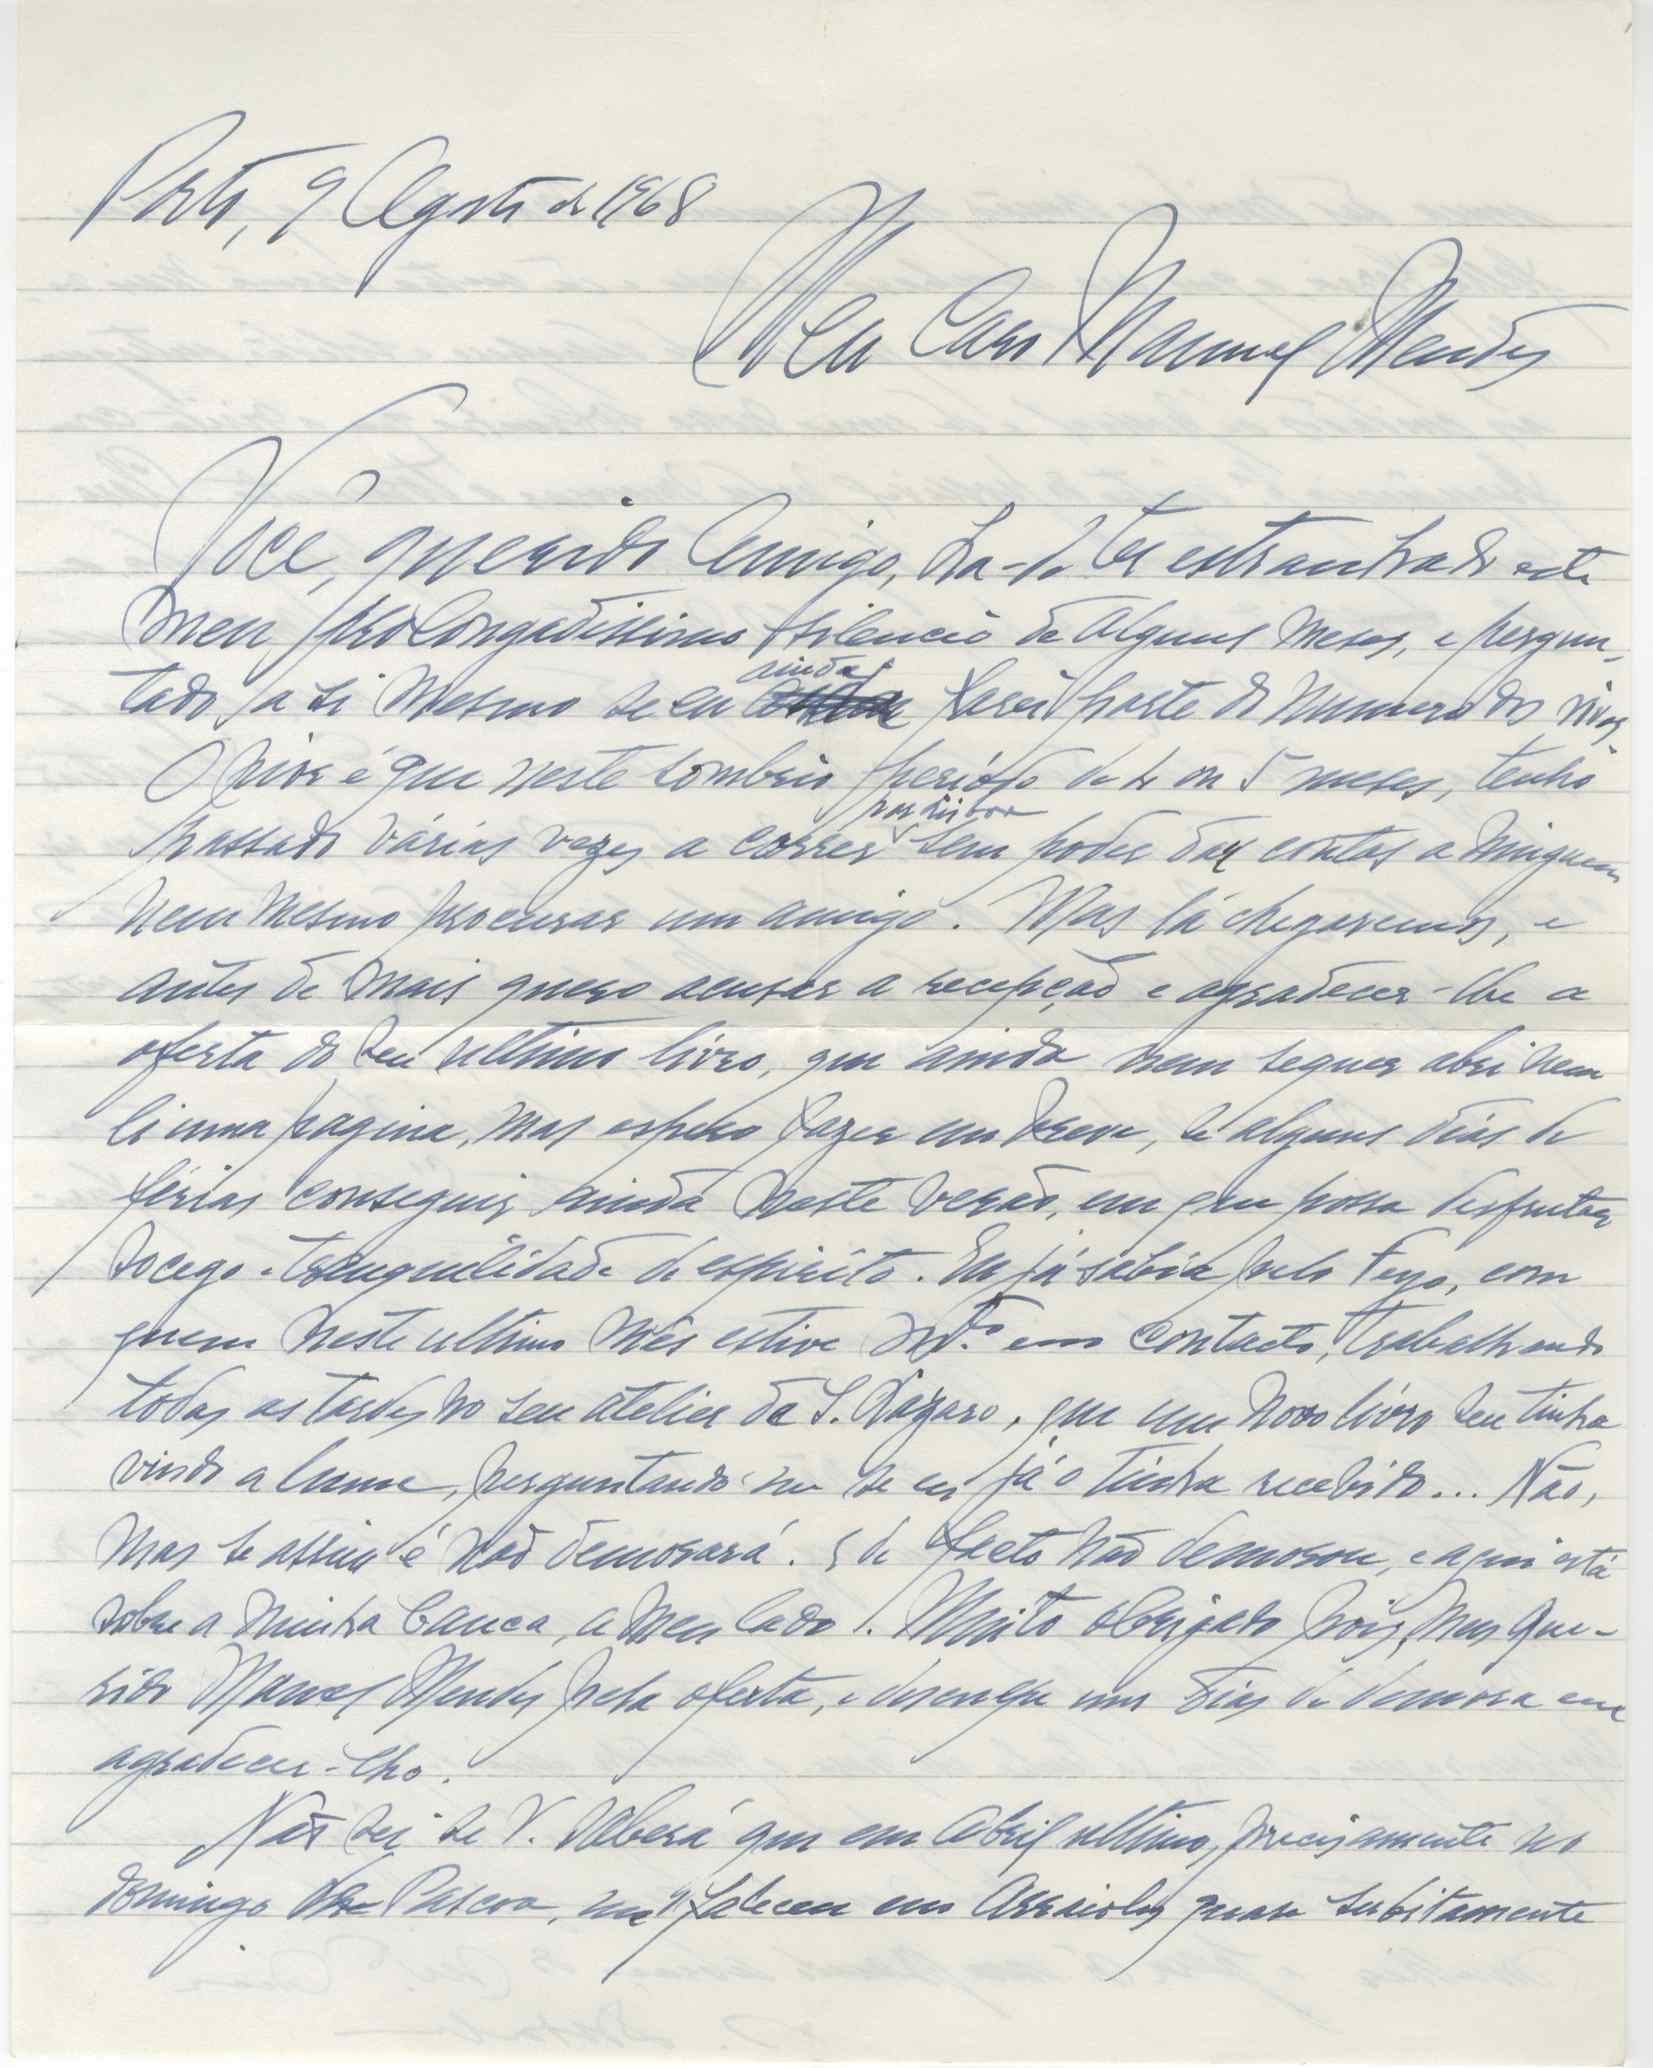 Porto, 9 Agosto de 1968
Meu Caro Manuel Mendes
Você, querido Amigo, ha-de ter estranhado este
meu prolongadissimo silencio de alguns meses, e pergun-
tado a si mesmo se eu ainda farei parte do numero dos vivos
O pior é que neste sombrio período de 4 ou 5 meses, tenho
passado várias vezes a correr por Lisboa sem poder dar contas a ninguem
nem mesmo procurar um amigo. Mas lá chegaremos, e
antes de mais quero acusar a recepção e agradecer-lhe a
oferta do seu ultimo livro, que ainda nem sequer abri nem
li uma pagina, mas espero fazer em breve, se alguns dias de
férias conseguir ainda neste verão, em que possa disfrutar
socego e tranquilidade de espirito. Eu já sabia pelo Feyo, com
quem neste ultimo mês estive mto. em contacto, trabalhando
todas as tardes no seu atelier de S. Lázaro, que um novo livro seu tinha
vindo a lume, perguntando-me se eu já o tinha recebido... Não,
mas se assim é não demorará. E de facto não demorou, e aqui está
sobre a minha banca, a meu lado. Muito obrigado pois, meu que-
rido Manuel Mendes pela oferta, e desculpe uns dias de demora em
agradecer-lho.
Não sei se V. saberá que em Abril ultimo, precisamente no
domingo de Pascoa, me faleceu em Arraiolos quase subitamente